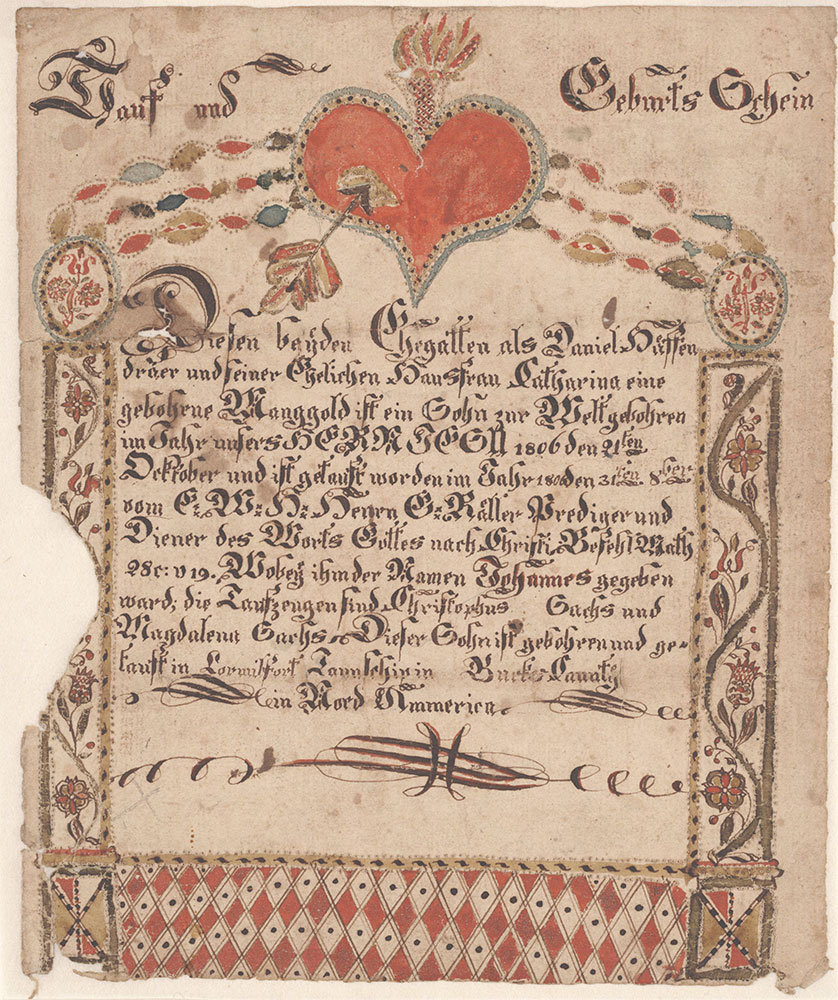 Tauf und Geburts Schein
Diesen beyden Ehegatten als Daniel Häffen
dräer und seiner Ehelichen Hausfrau Catharina eine
gebohrne Manggold ist ein Sohn zur Welt gebohren
im Jahr unsers HERRN JESU 1806 den 21ten
Ocktober und ist getauft worden im Jahr 1806 den 31ten 8ber
vom E: W: H: Herrn G: Räller Prediger und
Diener des Worts Gottes nach Christi Befehl Math
28c: v 19. Wobey ihm der Namen Johannes gegeben
ward; die Taufzeugen sind Christophus Sachs und
Magdalena Sachs. Dieser Sohn ist gebohren und ge-
tauft in Taunschip in Bucks Caunty
in Nord Ammerica